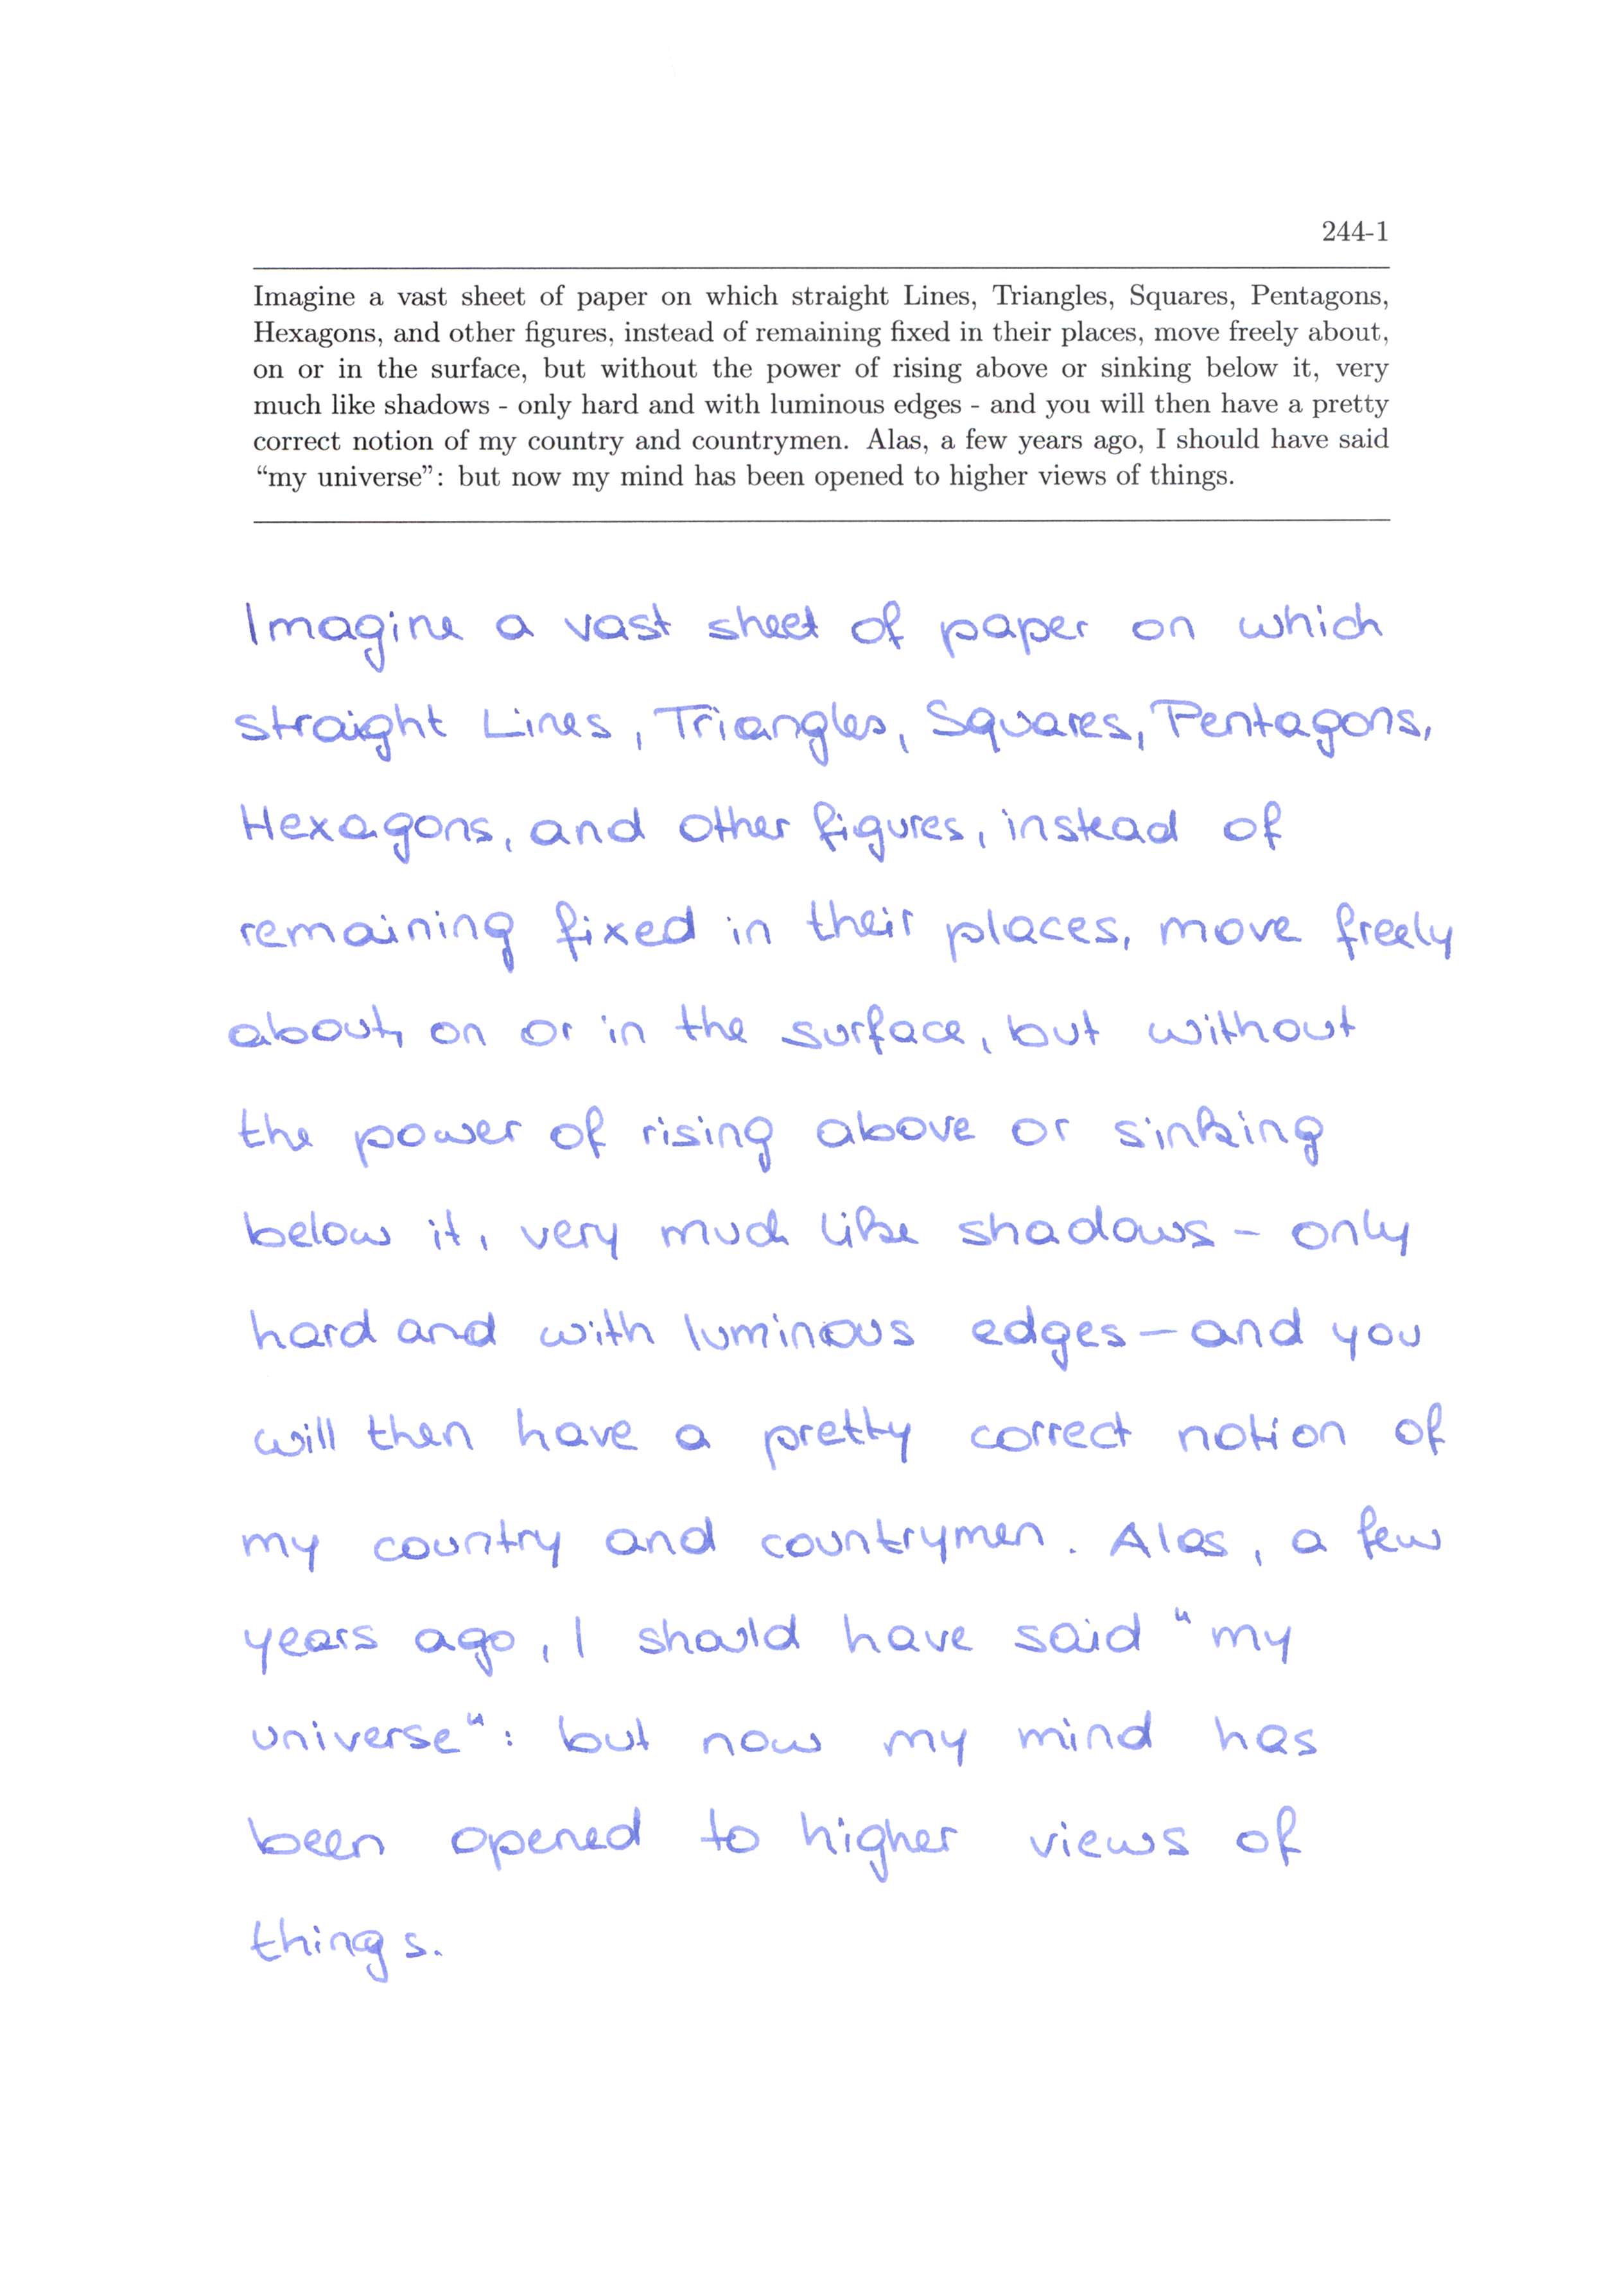 244-1
Imagine a vast sheet of paper on which straight Lines, Triangles, Squares, Pentagons,
Hexagons, and other figures, instead of remaining fixed in their places, move freely about,
on or in the surface, but without the power of rising above or sinking below it, very
much like shadows - only hard and with luminous edges - and you will then have a pretty
correct notion of my country and countrymen. Alas, a few years ago, I should have said
“my universe”: but now my mind has been opened to higher views of things.
Imagine a vast sheet of paper on which
straight Lines, Triangles, Squares, Pentagons,
Hexagons, and other figures, instead of
remaining fixed in their places, move freely
about, on or in the surface, but without
the power of rising above or sinking
below it, very much like shadows - only
hard and with luminous edges - and you
will then have a pretty correct notion of
my country and countrymen. Alas, a few
years ago, I should have said "my
universe": but now my mind has
been opened to higher views of
things.